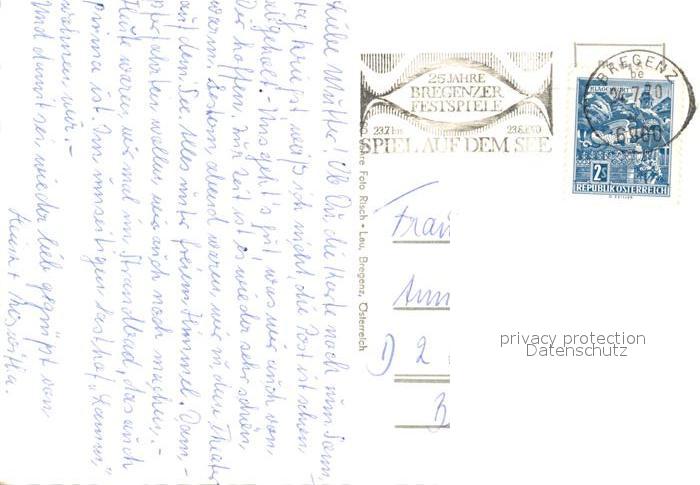 Liebe Mutti! Ob Dir die Karte noch zum Sonn-
tag kriegst, weiß ich nicht, die Post ist schon
abgeholt. Uns geht's gut, was wir auch von
Dir hoffen. Zur Zeit ist es wieder sehr schön,
warm. Gestern abend waren wir in dem Theater
auf dem See. Alles unter freiem Himmel. Dam-
pferfahrten wollen wir auch noch machen. -
Heute waren wir mal im Strandbad, das auch
prima ist. Im Gasthof "Lamm"
wohnen wir. -
Und damit sei wieder lieb gegrüßt von
Heinz +
25 JAHRE
BREGENZER
FESTSPIELE
23.7 bis 23.8.1970
SPIEL AUF DEM SEE
BREGENZ
6900
KLAGENFURT
2 S
REPUBLIK ÖSTERREICH
Jahre Foto Risch • Lau, Bregenz, Österreich
Frau
D 2
privacy protection
Datenschutz